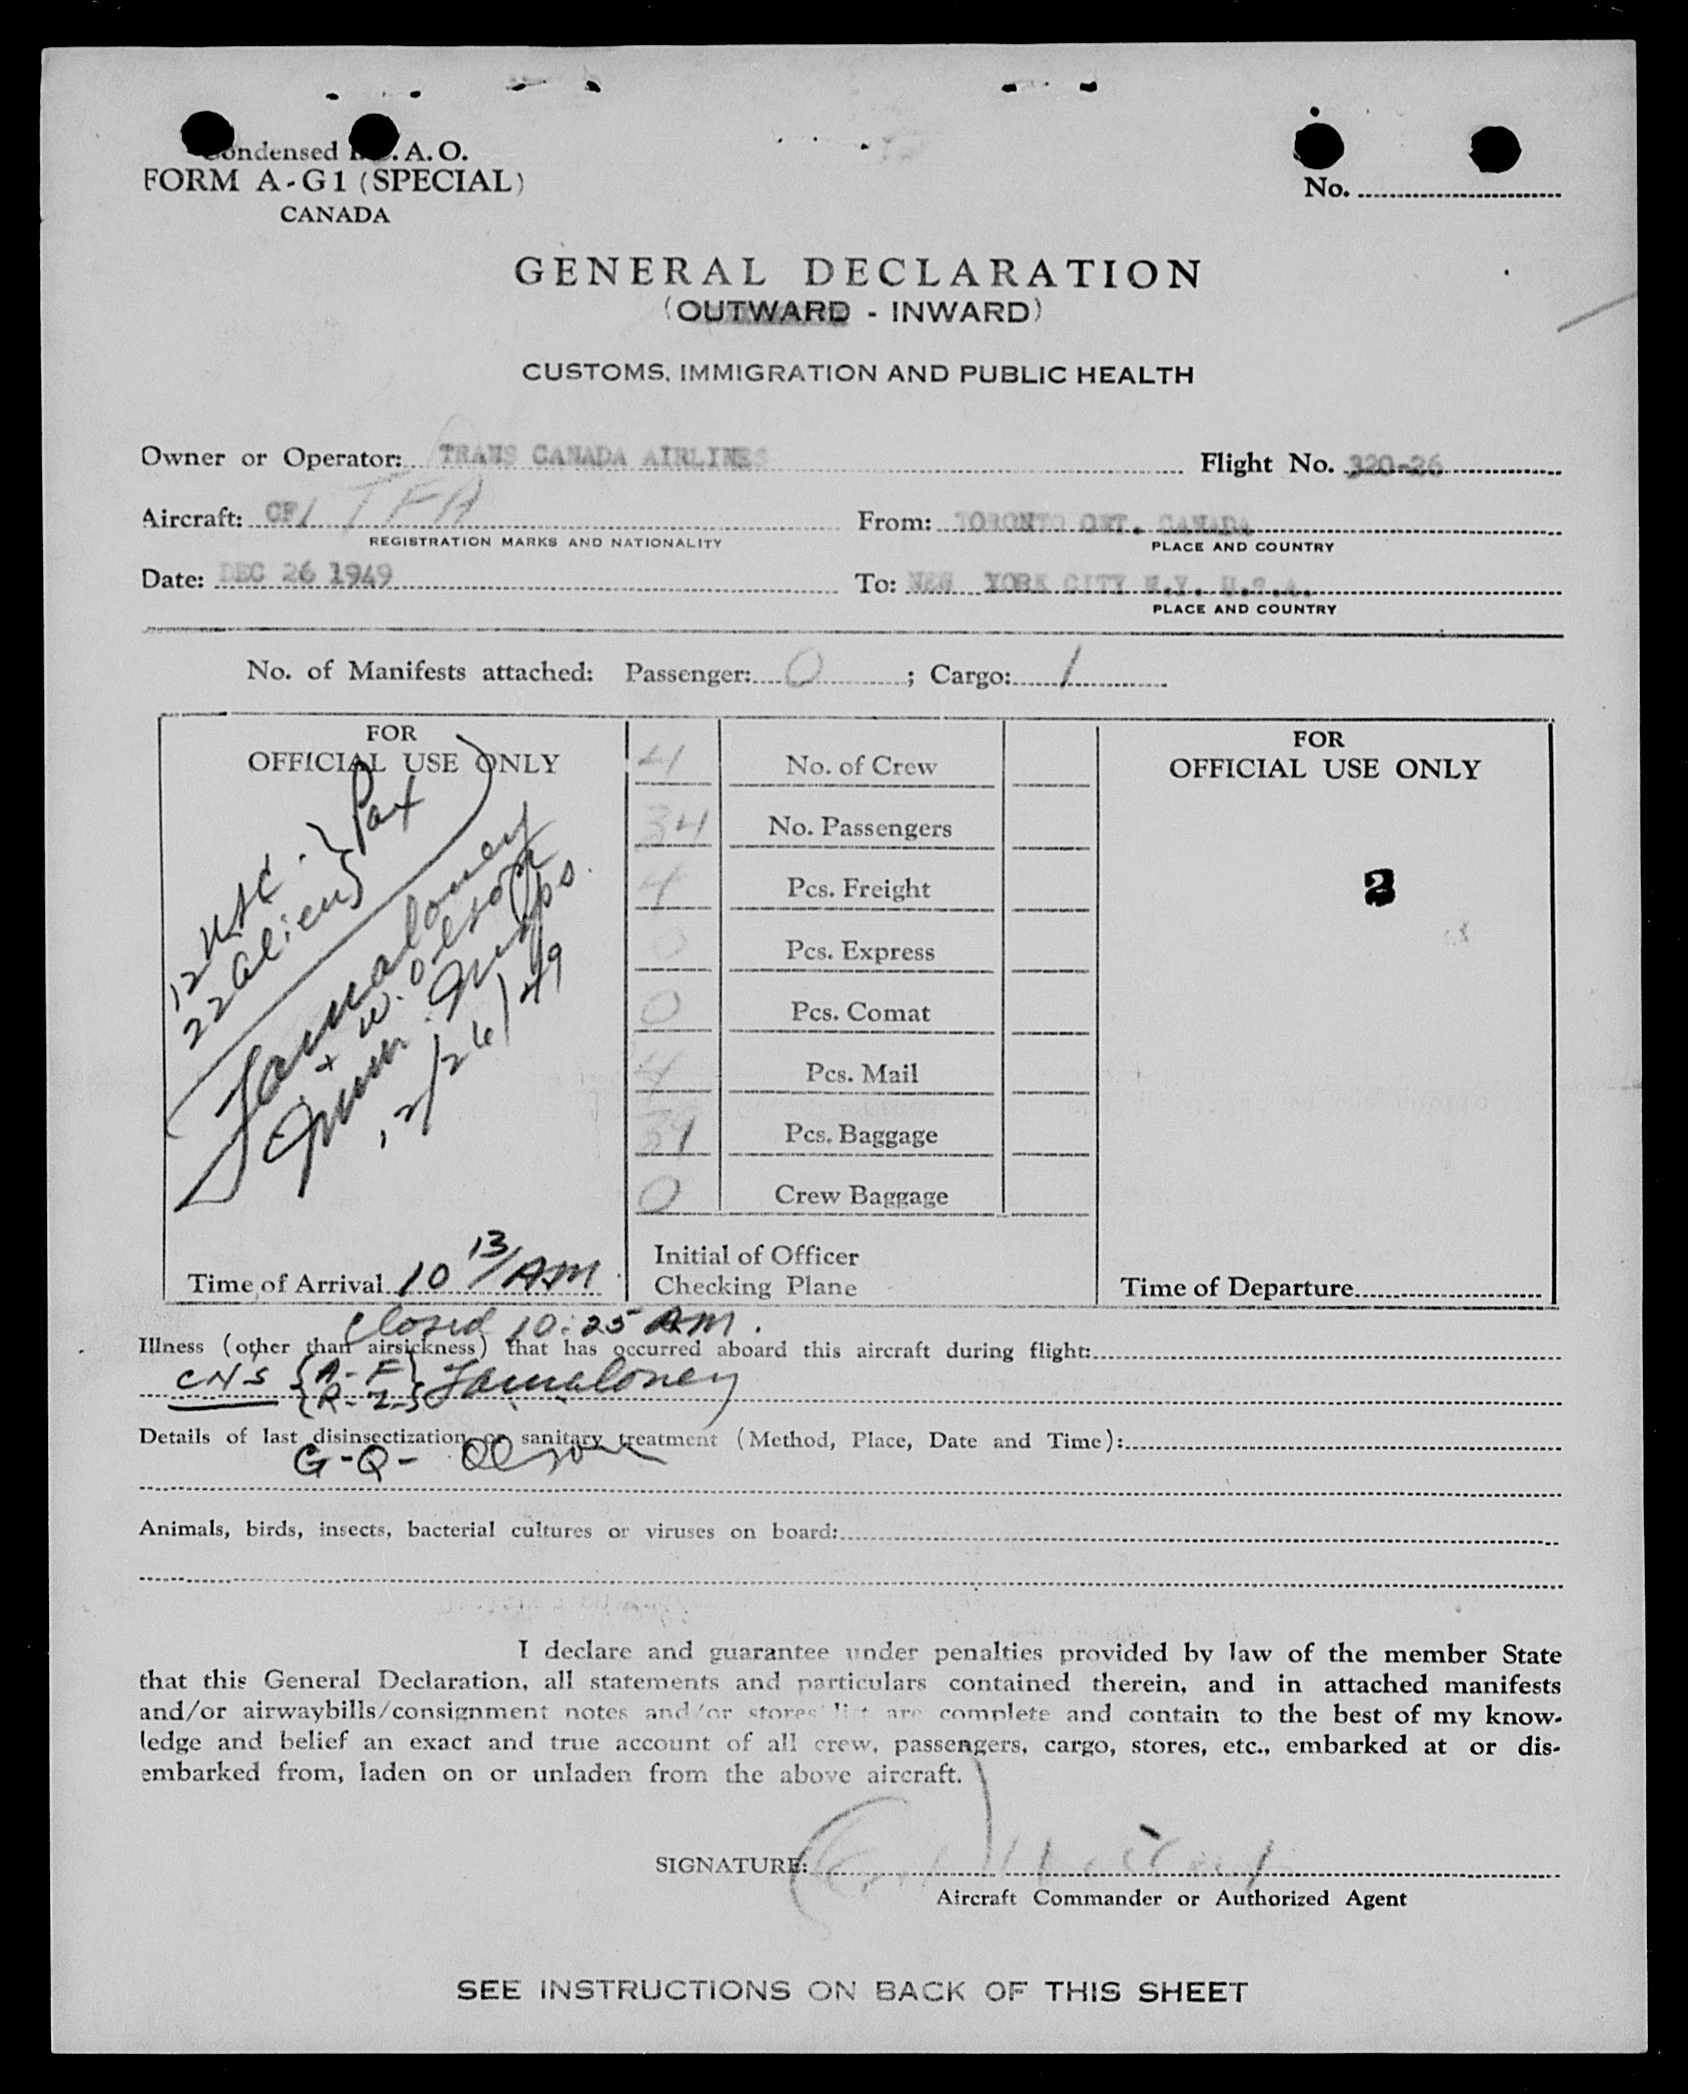 Condensed I.C.A.O.
FORM A-G1 (SPECIAL)
CANADA
No.
GENERAL DECLARATION
(OUTWARD - INWARD)
CUSTOMS, IMMIGRATION AND PUBLIC HEALTH
Owner or Operator: TRANS CANADA AIRLINES Flight No. 320-26
Aircraft: CF/ TFA From: TORONTO ONT. CANADA
REGISTRATION MARKS AND NATIONALITY PLACE AND COUNTRY
Date: DEC 26 1949 To: NEW YORK CITY N.Y. U.S.A.
PLACE AND COUNTRY
No. of Manifests attached: Passenger: 0 ; Cargo: 1
FOR
OFFICIAL USE ONLY
12 USC. } Pax
22 alien }
Jamaloney
+ W. Olson
Imm. Insps.
12/26/49
Time of Arrival 10 13/AM
4 No. of Crew
34 No. Passengers
4 Pcs. Freight
0 Pcs. Express
0 Pcs. Comat
4 Pcs. Mail
Pcs. Baggage
0 Crew Baggage
Initial of Officer
Checking Plane
FOR
OFFICIAL USE ONLY
2
Time of Departure
Closed 10:25 AM.
Illness (other than airsickness) that has occurred aboard this aircraft during flight:
CN's {A-F} {R-Z} Jamaloney
Details of last disinsectization or sanitary treatment (Method, Place, Date and Time):
G-Q- Olson
Animals, birds, insects, bacterial cultures or viruses on board:
I declare and guarantee under penalties provided by law of the member State
that this General Declaration, all statements and particulars contained therein, and in attached manifests
and/or airwaybills/consignment notes and/or stores list are complete and contain to the best of my know-
ledge and belief an exact and true account of all crew, passengers, cargo, stores, etc., embarked at or dis-
embarked from, laden on or unladen from the above aircraft.
SIGNATURE:
Aircraft Commander or Authorized Agent
SEE INSTRUCTIONS ON BACK OF THIS SHEET